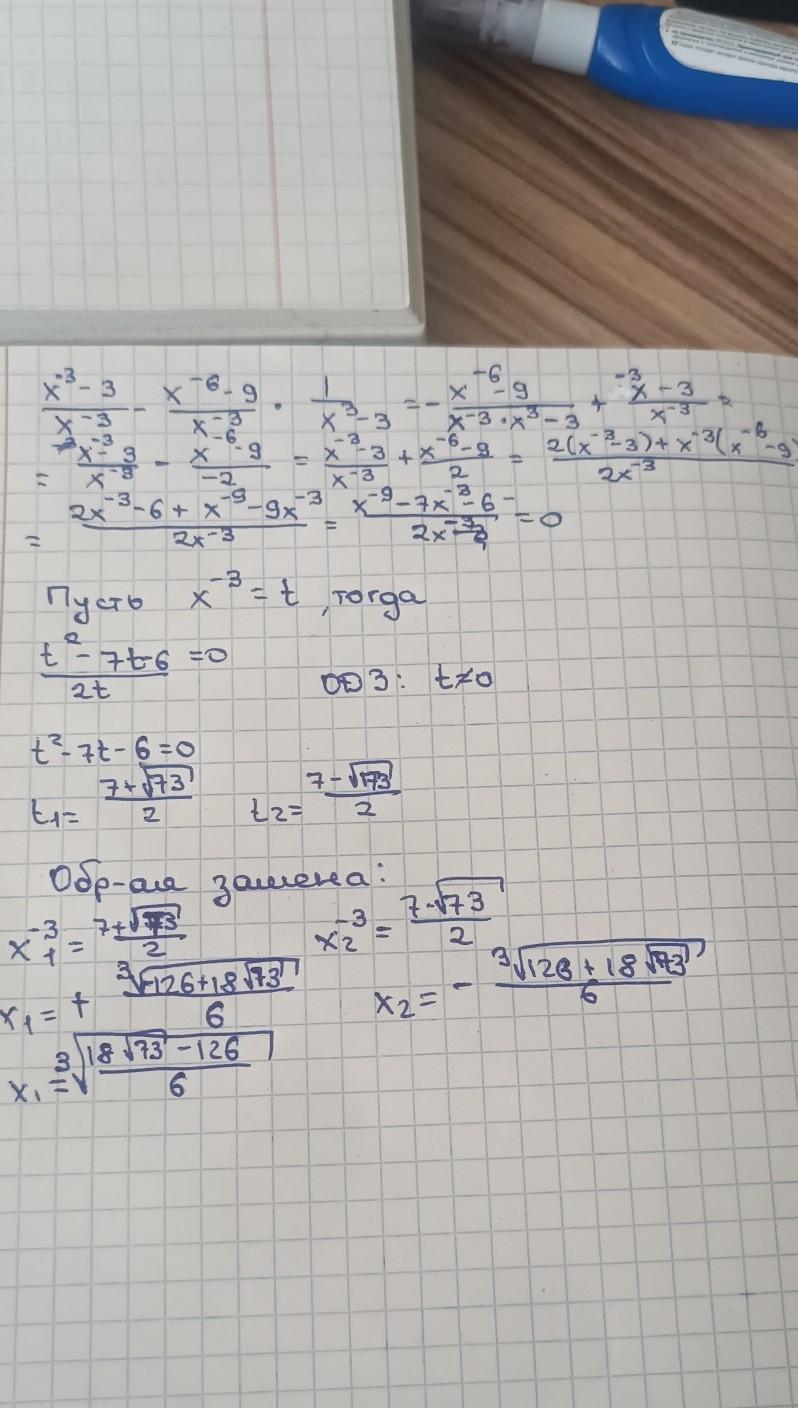 (x⁻³ - 3)/(x⁻³) - (x⁻⁶ - 9)/(x⁻³) · 1/(x³ - 3) = - (x⁻⁶ - 9)/(x⁻³ · x³ - 3) + (⁻³x - 3)/(x⁻³) =
= (x⁻³ - 3)/(x⁻³) - (x⁻⁶ - 9)/(-2) = (x⁻³ - 3)/(x⁻³) + (x⁻⁶ - 9)/2 = (2(x⁻³ - 3) + x⁻³(x⁻⁶ - 9))/(2x⁻³)
= (2x⁻³ - 6 + x⁻⁹ - 9x⁻³)/(2x⁻³) = (x⁻⁹ - 7x⁻³ - 6)/(2x⁻³) = 0
Пусть x⁻³ = t, тогда
(t² - 7t - 6)/(2t) = 0 ОДЗ: t ≠ 0
t² - 7t - 6 = 0
t₁ = (7 + √73)/2 t₂ = (7 - √73)/2
Обр-ая замена:
x₁⁻³ = (7 + √73)/2 x₂⁻³ = (7 - √73)/2
x₁ = + ∛(-126 + 18√73)/6 x₂ = - ∛(126 + 18√73)/6
x₁ = ∛((18√73 - 126)/6)